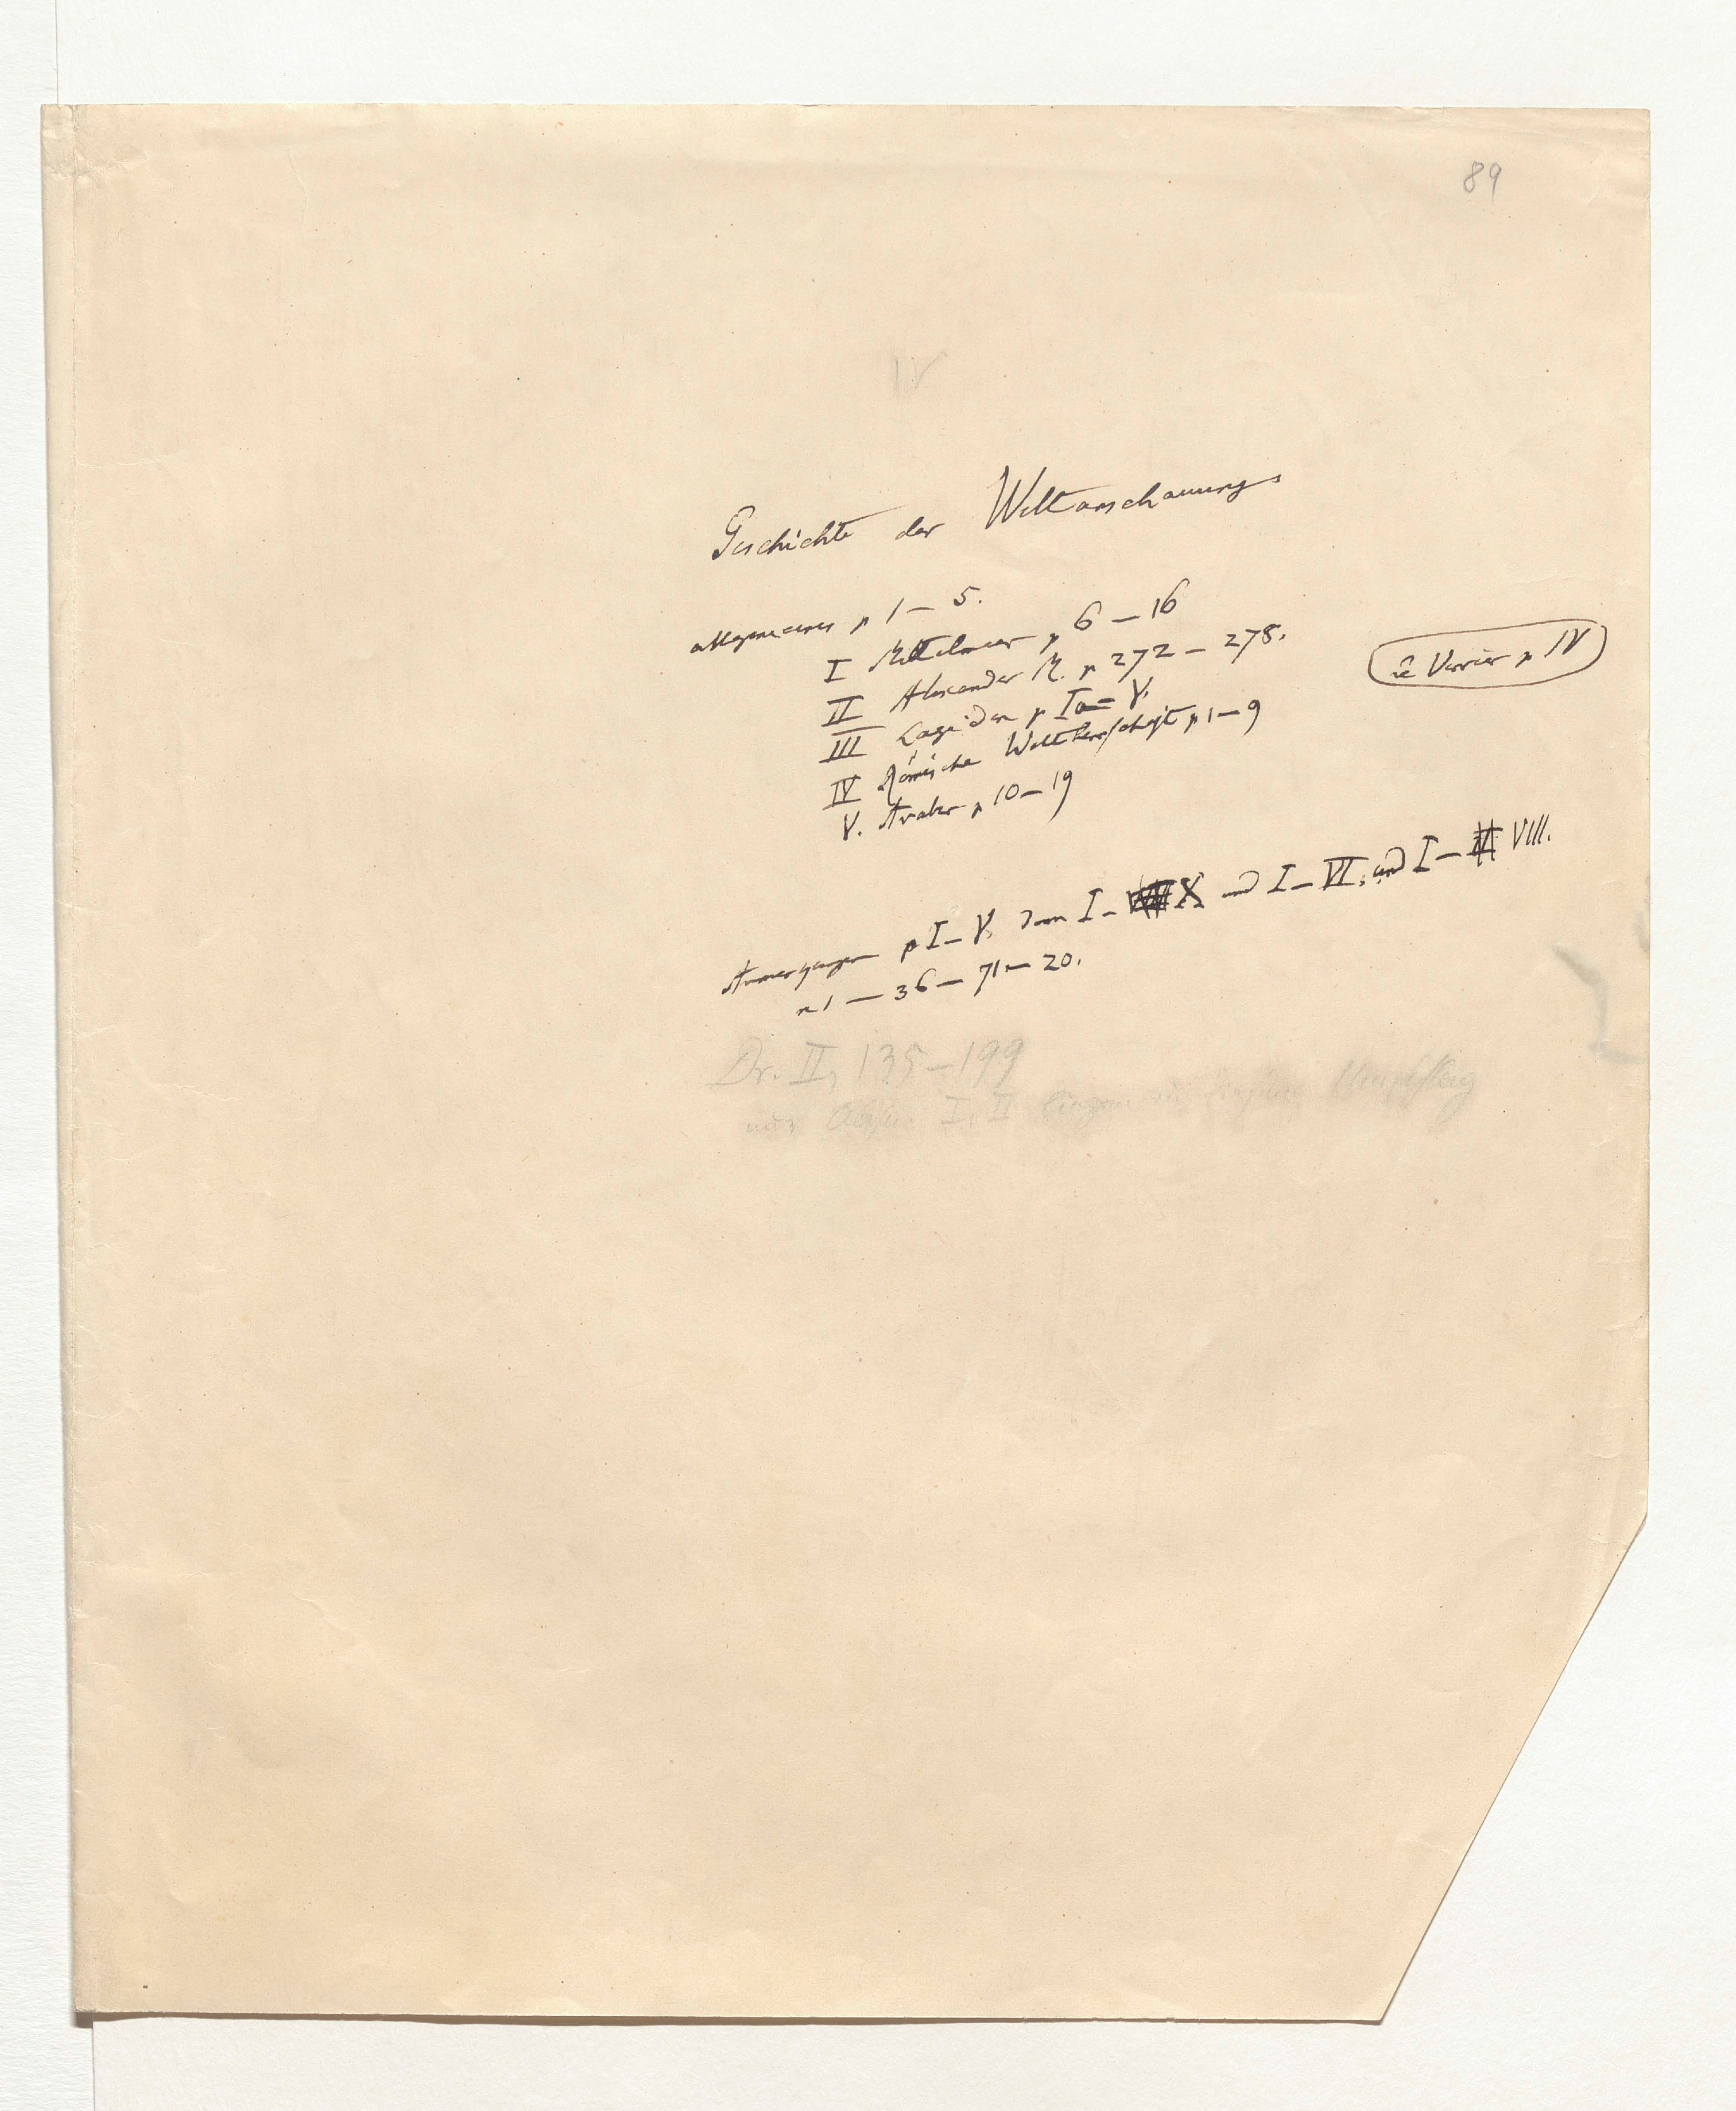 89
IV
Geschichte der Weltanschauung
allgemeines p 1 – 5.
I Mittelmeer p 6 – 16
II Alexander M. p 272 – 278.
le Verrier p IV
III Lagiden p Ia = V.
IV Römische Weltherrschaft p 1 – 9
V. Araber p 10 – 19
Anmerkungen p I – V, dann I – X und I – VI, und I – VIII.
n 1 – 36 – 71 – 20.
Dr. II, 135–199
I, II